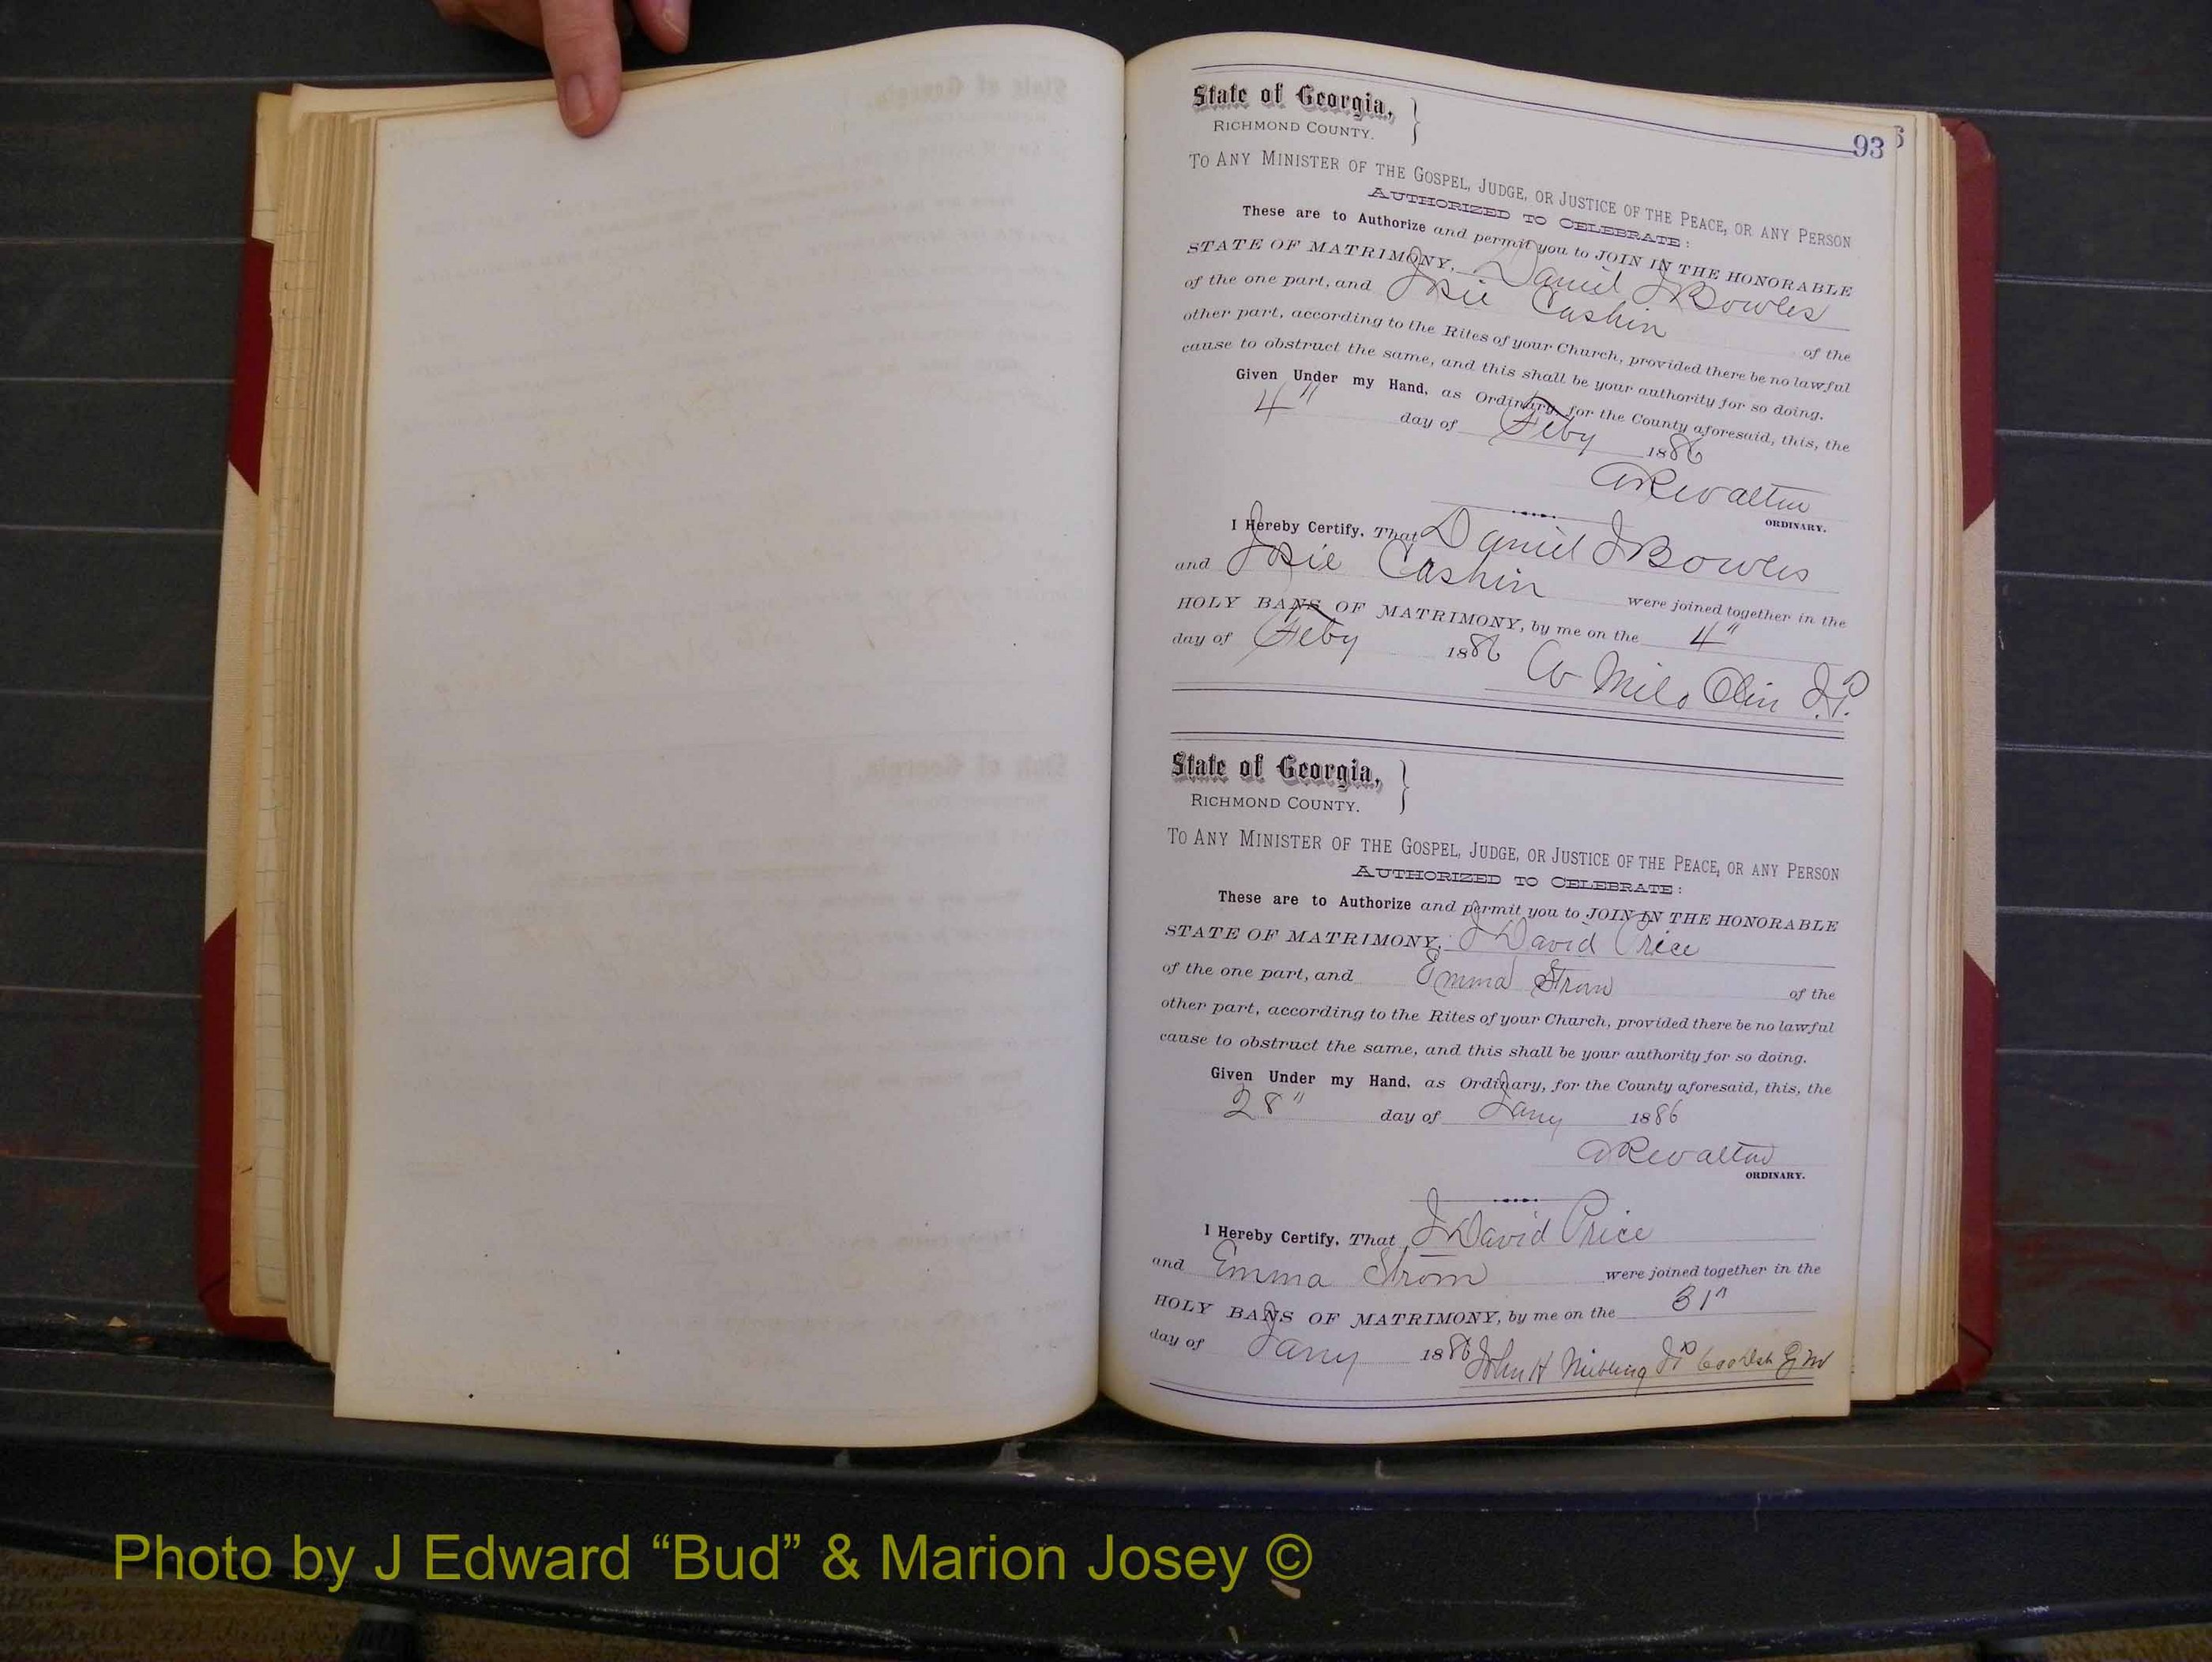 State of Georgia,
RICHMOND COUNTY.
93
TO ANY MINISTER OF THE GOSPEL, JUDGE, OR JUSTICE OF THE PEACE, OR ANY PERSON
AUTHORIZED TO CELEBRATE:
These are to Authorize and permit you to JOIN IN THE HONORABLE
STATE OF MATRIMONY, Daniel J Bowles
of the one part, and Josie Cashin of the
other part, according to the Rites of your Church, provided there be no lawful
cause to obstruct the same, and this shall be your authority for so doing.
Given Under my Hand, as Ordinary, for the County aforesaid, this, the
4" day of Feby 1886
A R Walton
ORDINARY.
I Hereby Certify, That Daniel J Bowles
and Josie Cashin were joined together in the
HOLY BANS OF MATRIMONY, by me on the 4"
day of Feby 1886 W Milo Olin J.P.
State of Georgia,
RICHMOND COUNTY.
TO ANY MINISTER OF THE GOSPEL, JUDGE, OR JUSTICE OF THE PEACE, OR ANY PERSON
AUTHORIZED TO CELEBRATE:
These are to Authorize and permit you to JOIN IN THE HONORABLE
STATE OF MATRIMONY, J David Price
of the one part, and Emma Strom of the
other part, according to the Rites of your Church, provided there be no lawful
cause to obstruct the same, and this shall be your authority for so doing.
Given Under my Hand, as Ordinary, for the County aforesaid, this, the
28" day of Jany 1886
A R Walton
ORDINARY.
I Hereby Certify, That J David Price
and Emma Strom were joined together in the
HOLY BANS OF MATRIMONY, by me on the 31"
day of Jany 1886 John H Nibling JP
Photo by J Edward “Bud” & Marion Josey ©